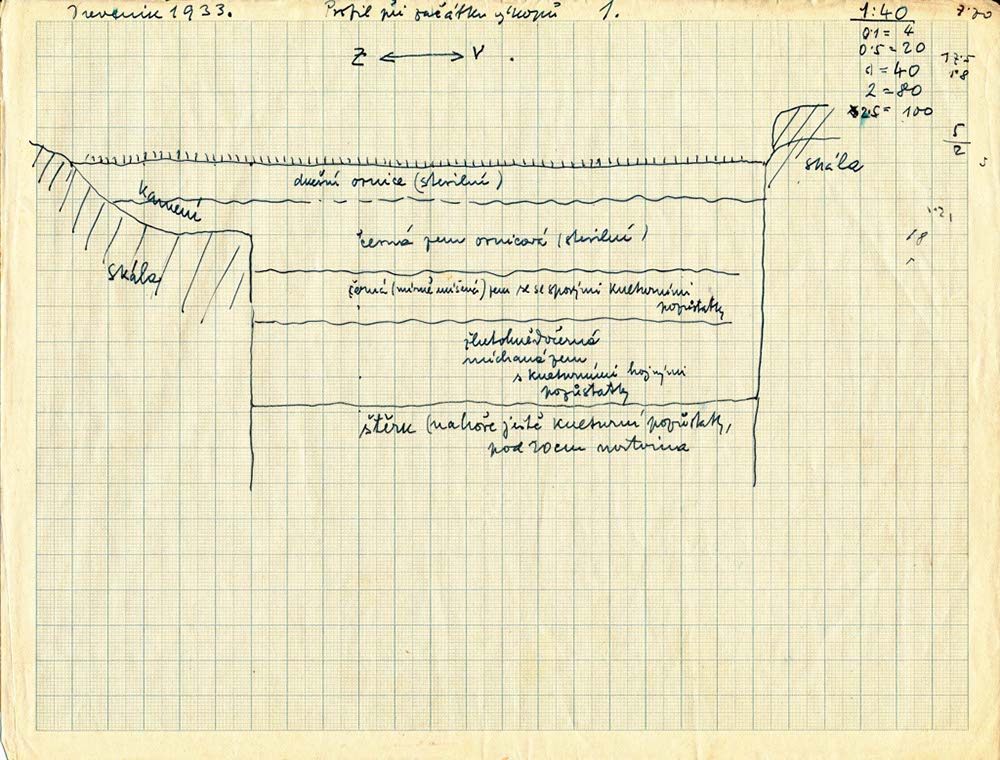 Dreveník 1933.
Profil při začátku výkopů 1.
Z ⟷ V.
1:40
0.1 = 4
0.5 = 20
1 = 40
2 = 80
2.5 = 100
7.20
17.5
1.8
5
2
skála
dnešní ornice (sterilní)
kamení
černá zem ornicová (sterilní)
skála
černá (mírně míšená) zem se se sporými kulturními
pozůstatky
žlutohnědočerná
míchaná zem
s kulturními hojnými
pozůstatky
štěrk (nahoře ještě kulturní pozůstatky,
pod 20cm
18